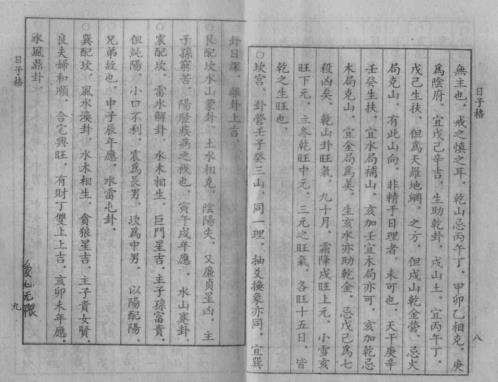 日子格
八
無主也，戒之慎之耳，乾山忌丙午丁，甲卯乙相克，庚
爲陰府，宜戊己辛吉，生助乾卦，戌山土，宜丙午丁，
戊己生扶，但爲天羅地網，之方，但戌山乾金營，忌火
局克山，有此山向，非精于日理者，未可也，天干庚辛
壬癸生扶，宜水局補山，亥加壬宜木局亦可，亥加乾忌
木局克山，宜金局爲美，生亥水亦助乾金，忌戊己爲七
殺凶矣，乾山卦旺氣，九十月，霜降戌旺上元，小雪亥
旺下元，立冬乾旺中元，三元之旺氣，各旺十五日，皆
乾之生旺也，
○坎宮，卦營壬子癸三山，同一理，抽爻換象亦同，宜巽
卦日課，離卦上吉，
○艮配坎，水山蒙卦，土水相克，陰陽失，又廉貞星凶，主
子孫窮苦，陽陸疾病之戕也，寅午戌年應，水山蹇卦，
○震配坎，雷水解卦，水木相生，巨門星吉，主子孫富貴，
但純陽，小口不利，震爲長男，坎爲中男，以陽配陽，
兄弟故也，申子辰年應，水雷屯卦，
○巽配坎，風水渙卦，水木相生，貪狼星吉，主子貴女賢，
良夫婦和順，合宅興旺，有財丁雙上上吉，亥卯未年應，
水風鼎卦，
日子格
九